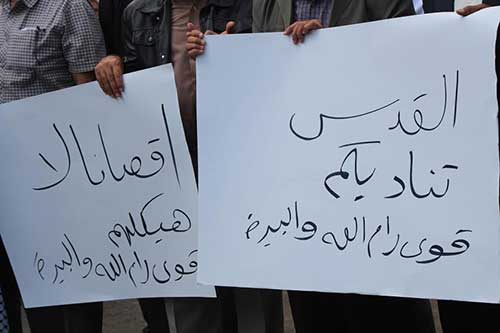 القدس
تناديكم
قوى رام الله والبيرة
اقصانا لا
هيكلهم
قوى رام الله والبيرة